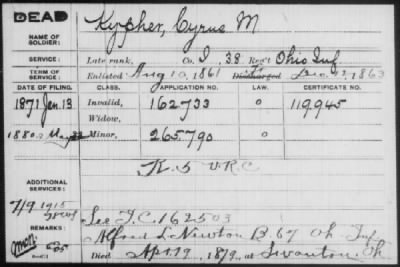 DEAD
NAME OF SOLDIER: Kypher, Cyrus M
SERVICE: Late rank, Co. I, 38 Reg't Ohio Inf.
TERM OF SERVICE: Enlisted Aug 10, 1861 Discharged Dec. 1863
DATE OF FILING. CLASS. APPLICATION NO. LAW. CERTIFICATE NO.
1871 Jan. 13 Invalid, 162733 O 119945
Widow,
1880 May 22 Minor, 265.790 O
K. 5 V.R.C
ADDITIONAL SERVICES:
7/9 1915
See I.C. 1625 03
REMARKS: Alfred L. Newton B. 67 Oh. Inf.
Died Apr. 19, 1879, at Swanton, Oh